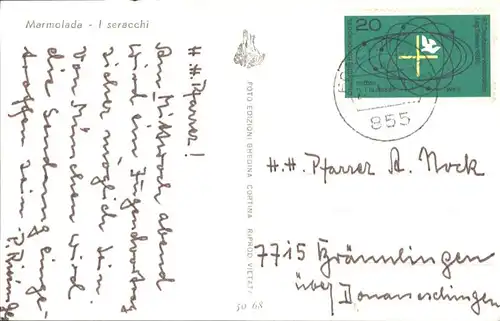 Marmolada - I seracchi
H. H. Pfarrer!
Am Mittwoch abend
wird ein Jugendvortrag
sicher möglich sein.
Von München wird
die Sendung einge-
troffen sein.
FOTO EDIZIONI GHEDINA CORTINA RIPROD. VIETAT.
50 68
20
855
H. H. Pfarrer A. Nock
7715 Bräunlingen
über Donaueschingen